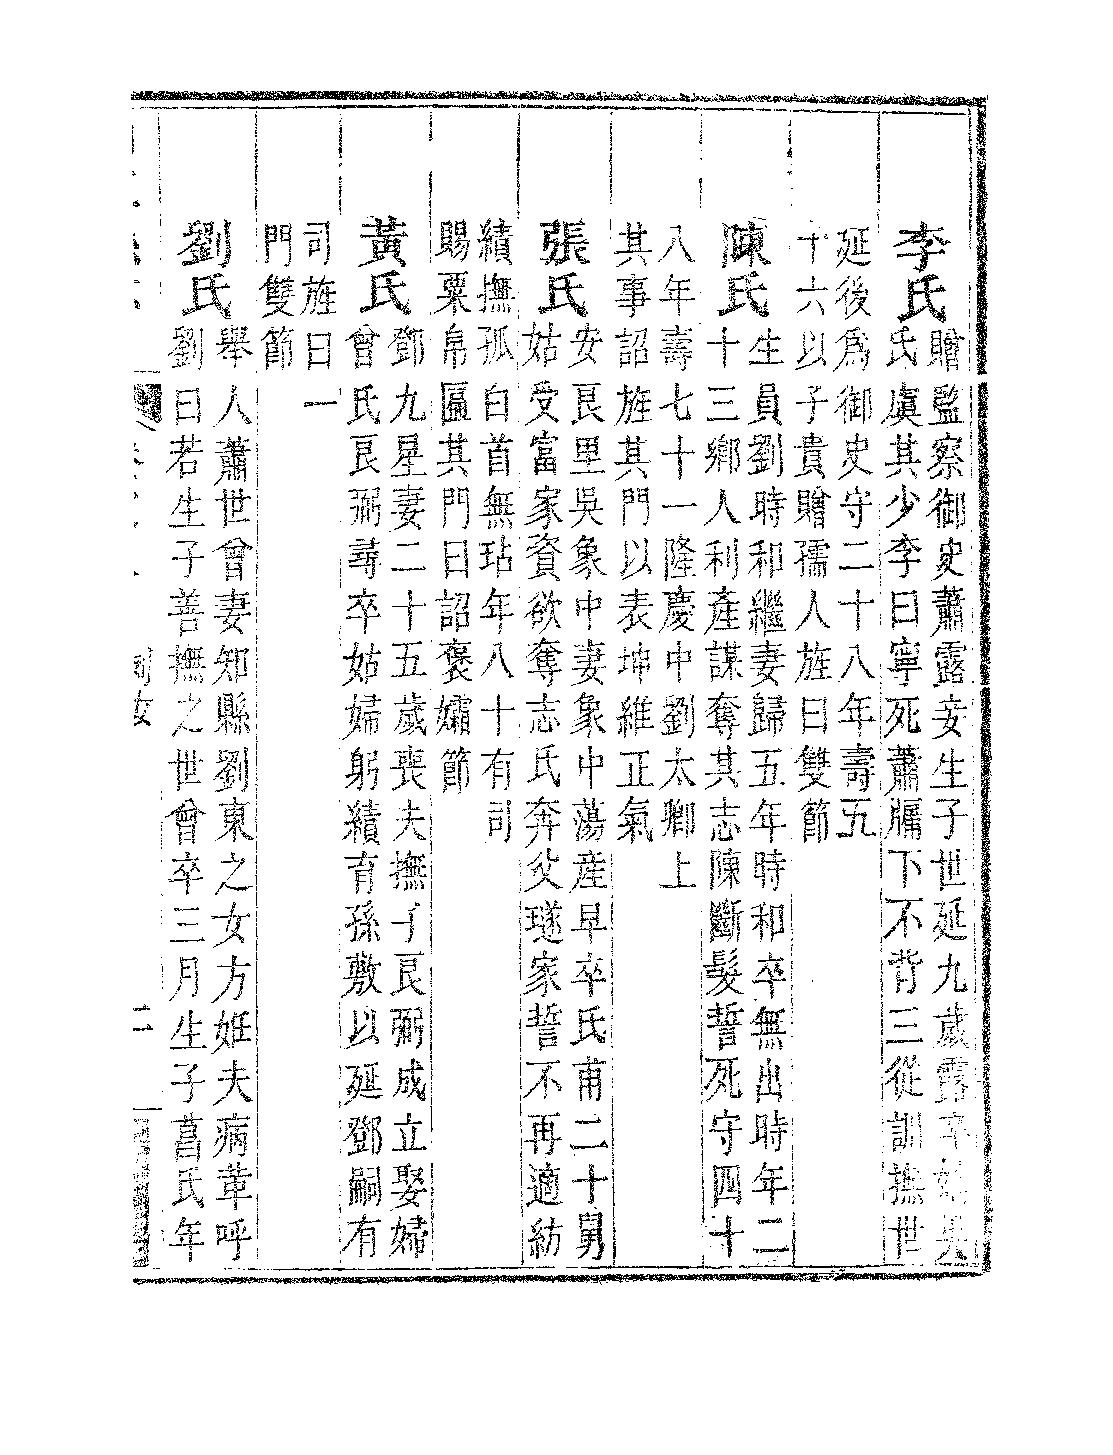 李氏
贈監察御史蕭露妾生子世延九歲露卒
氏虞其少李曰寧死蕭牖下不背三從訓撫世
延後爲御史守二十八年壽五
十六以子貴贈孺人旌曰雙節
陳氏
生員劉時和繼妻歸五年時和卒無出時年二
十三鄉人利產謀奪其志陳斷髮誓死守四十
八年壽七十一隆慶中劉太卿上
其事詔旌其門以表坤維正氣
張氏
安良里吳象中妻象中蕩産早卒氏甫二十舅
姑受富家資欲奪志氏奔父璲家誓不再適紡
績撫孤白首無玷年八十有司
賜粟帛匾其門曰詔褒孀節
黃氏
鄧九星妻二十五歲喪夫撫子良弼成立娶婦
曾氏良弼尋卒姑婦躬績育孫敷以延鄧嗣有
司旌曰一
門雙節
劉氏
舉人蕭世曾妻知縣劉東之女方姙夫病革呼
劉曰若生子善撫之世曾卒三月生子菖氏年
二